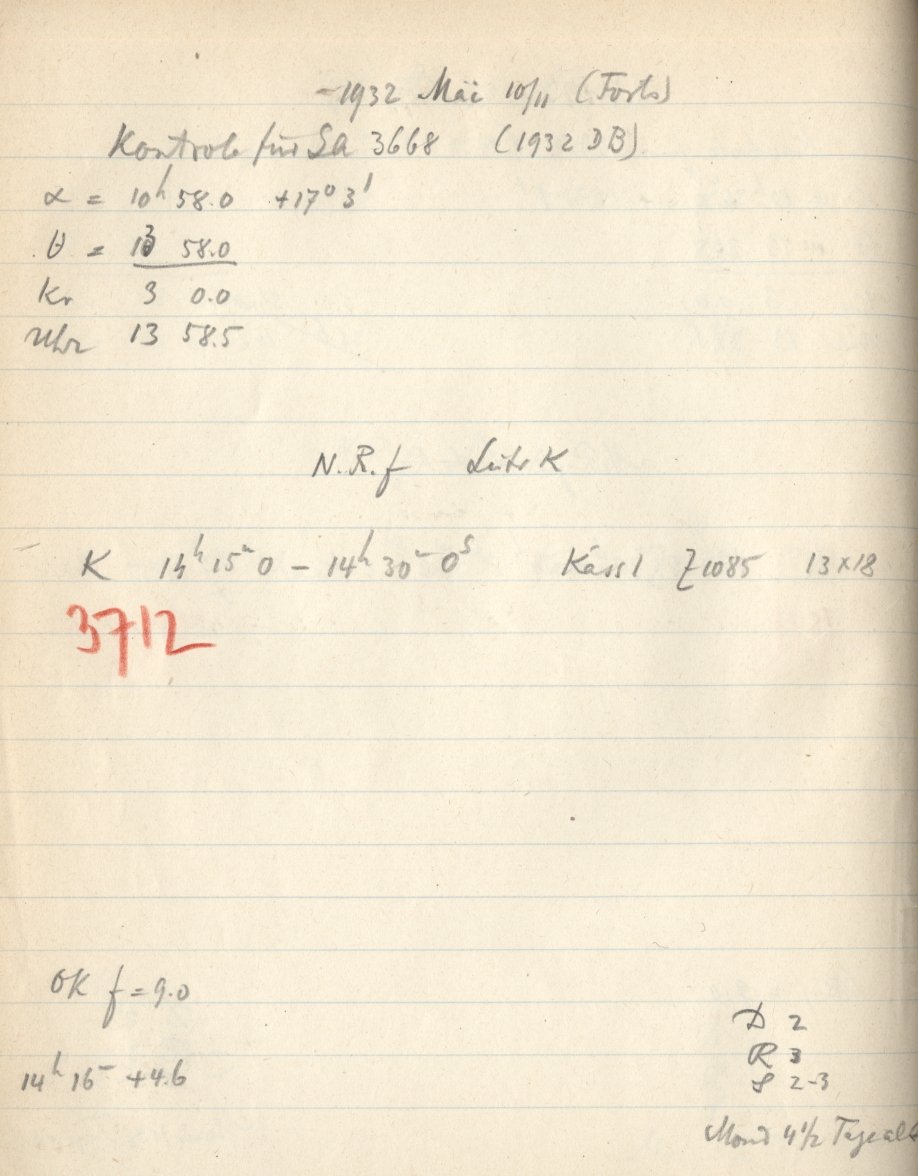 -1932 Mai 10/11 (Forts)
Kontrole für Sa 3668 (1932 DB)
α = 10ʰ 58.0 +17° 3'
θ = 13 58.0
Kr 3 0.0
Uhr 13 58.5
N.R.f K
K 14ʰ 15ᵐ 0 - 14ʰ 30ᵐ 0ˢ Kass 1 Z1085 13x18
3712
OK f = 9.0
14ʰ 16ᵐ +4.6
D 2
R 3
S 2-3
Mond 4 1/2 Tage alt